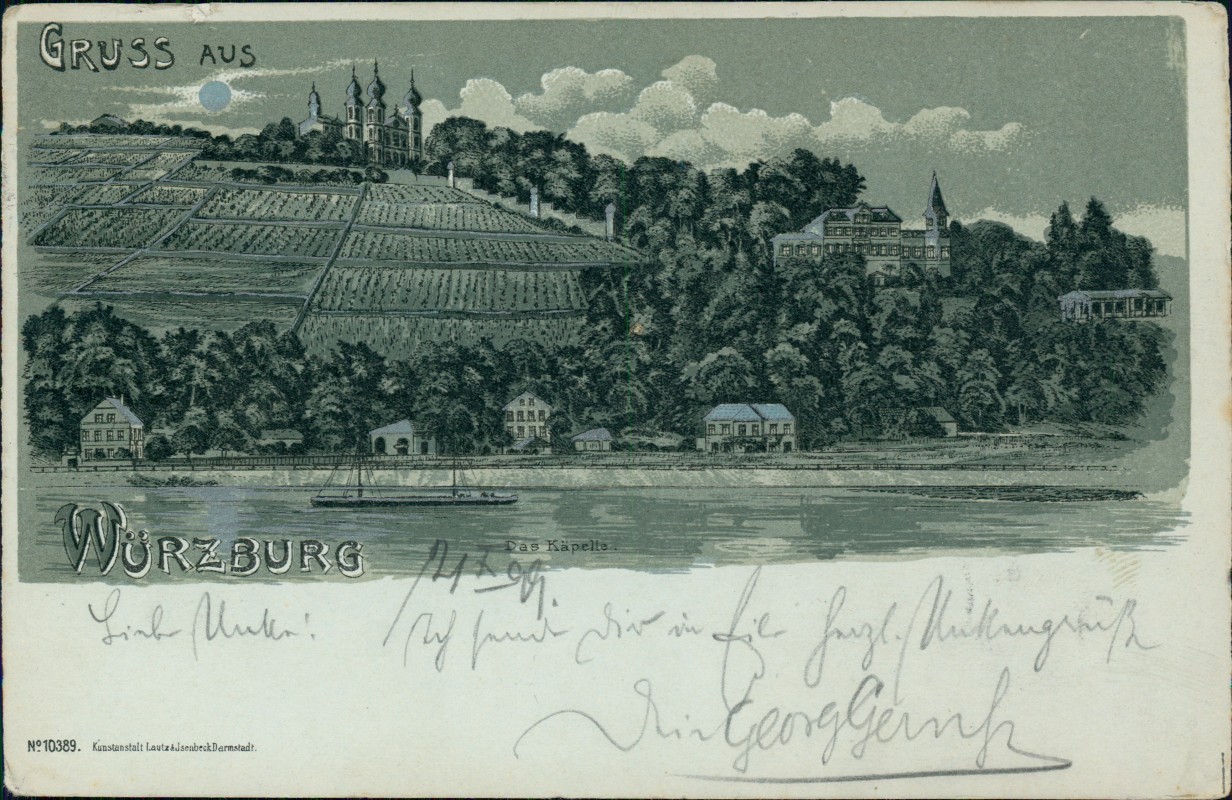 GRUSS AUS
WÜRZBURG
Das Käpelle.
Liebe Unke! Ich sende Dir in Eile herzl. Unkengrüße
Dein Georg
No 10389. Kunstanstalt Lautz & Jsenbeck Darmstadt.